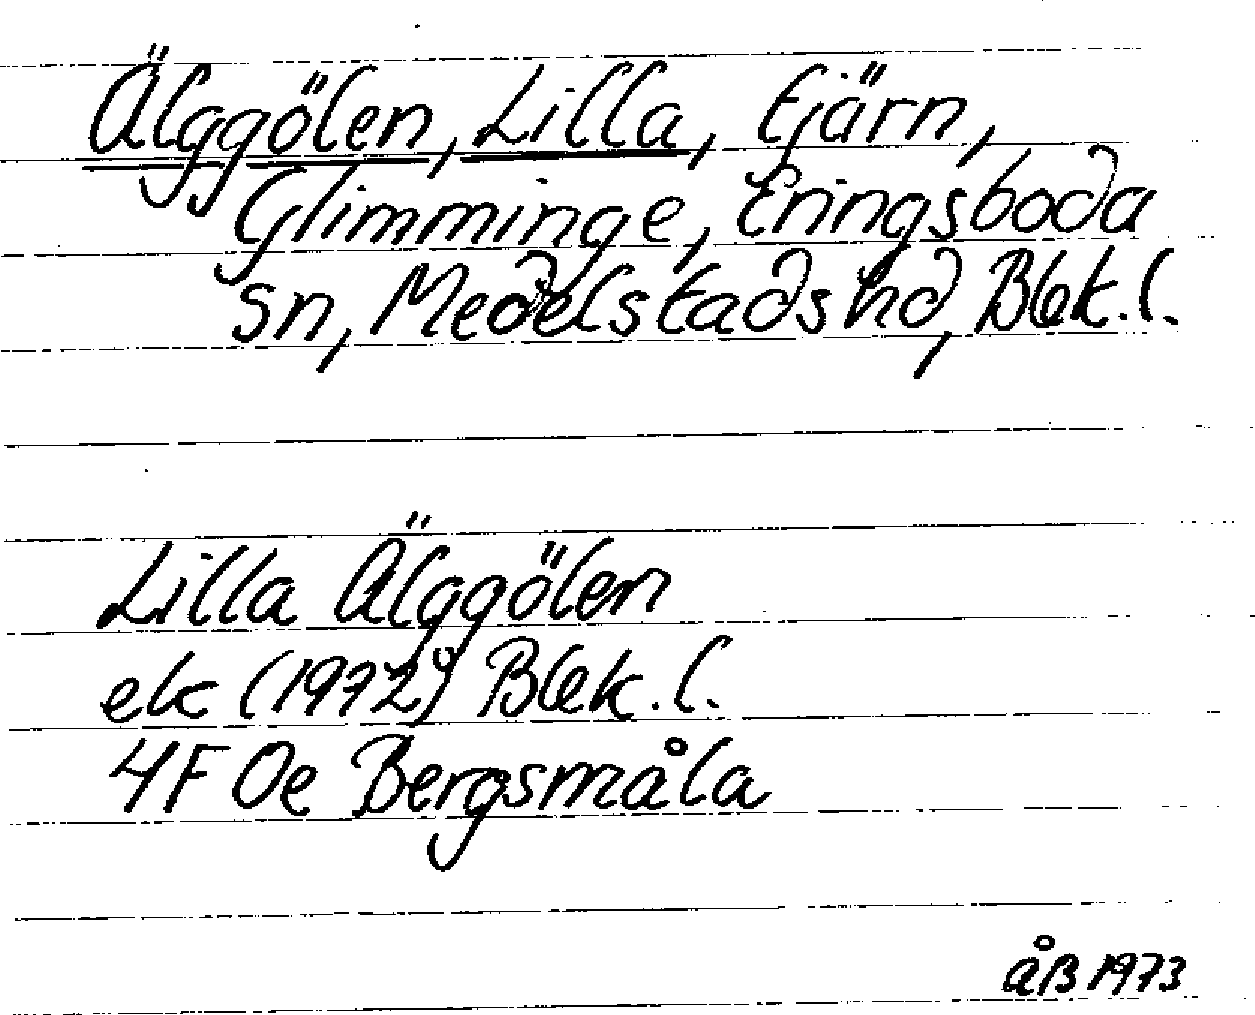 Älggölen, Lilla, tjärn,
Glimminge, Eringsboda
sn, Medelstads hd, Blek.l.
Lilla Älggölen
ek (1972) Blek.l.
4F 0e Bergsmåla
ÅB 1973